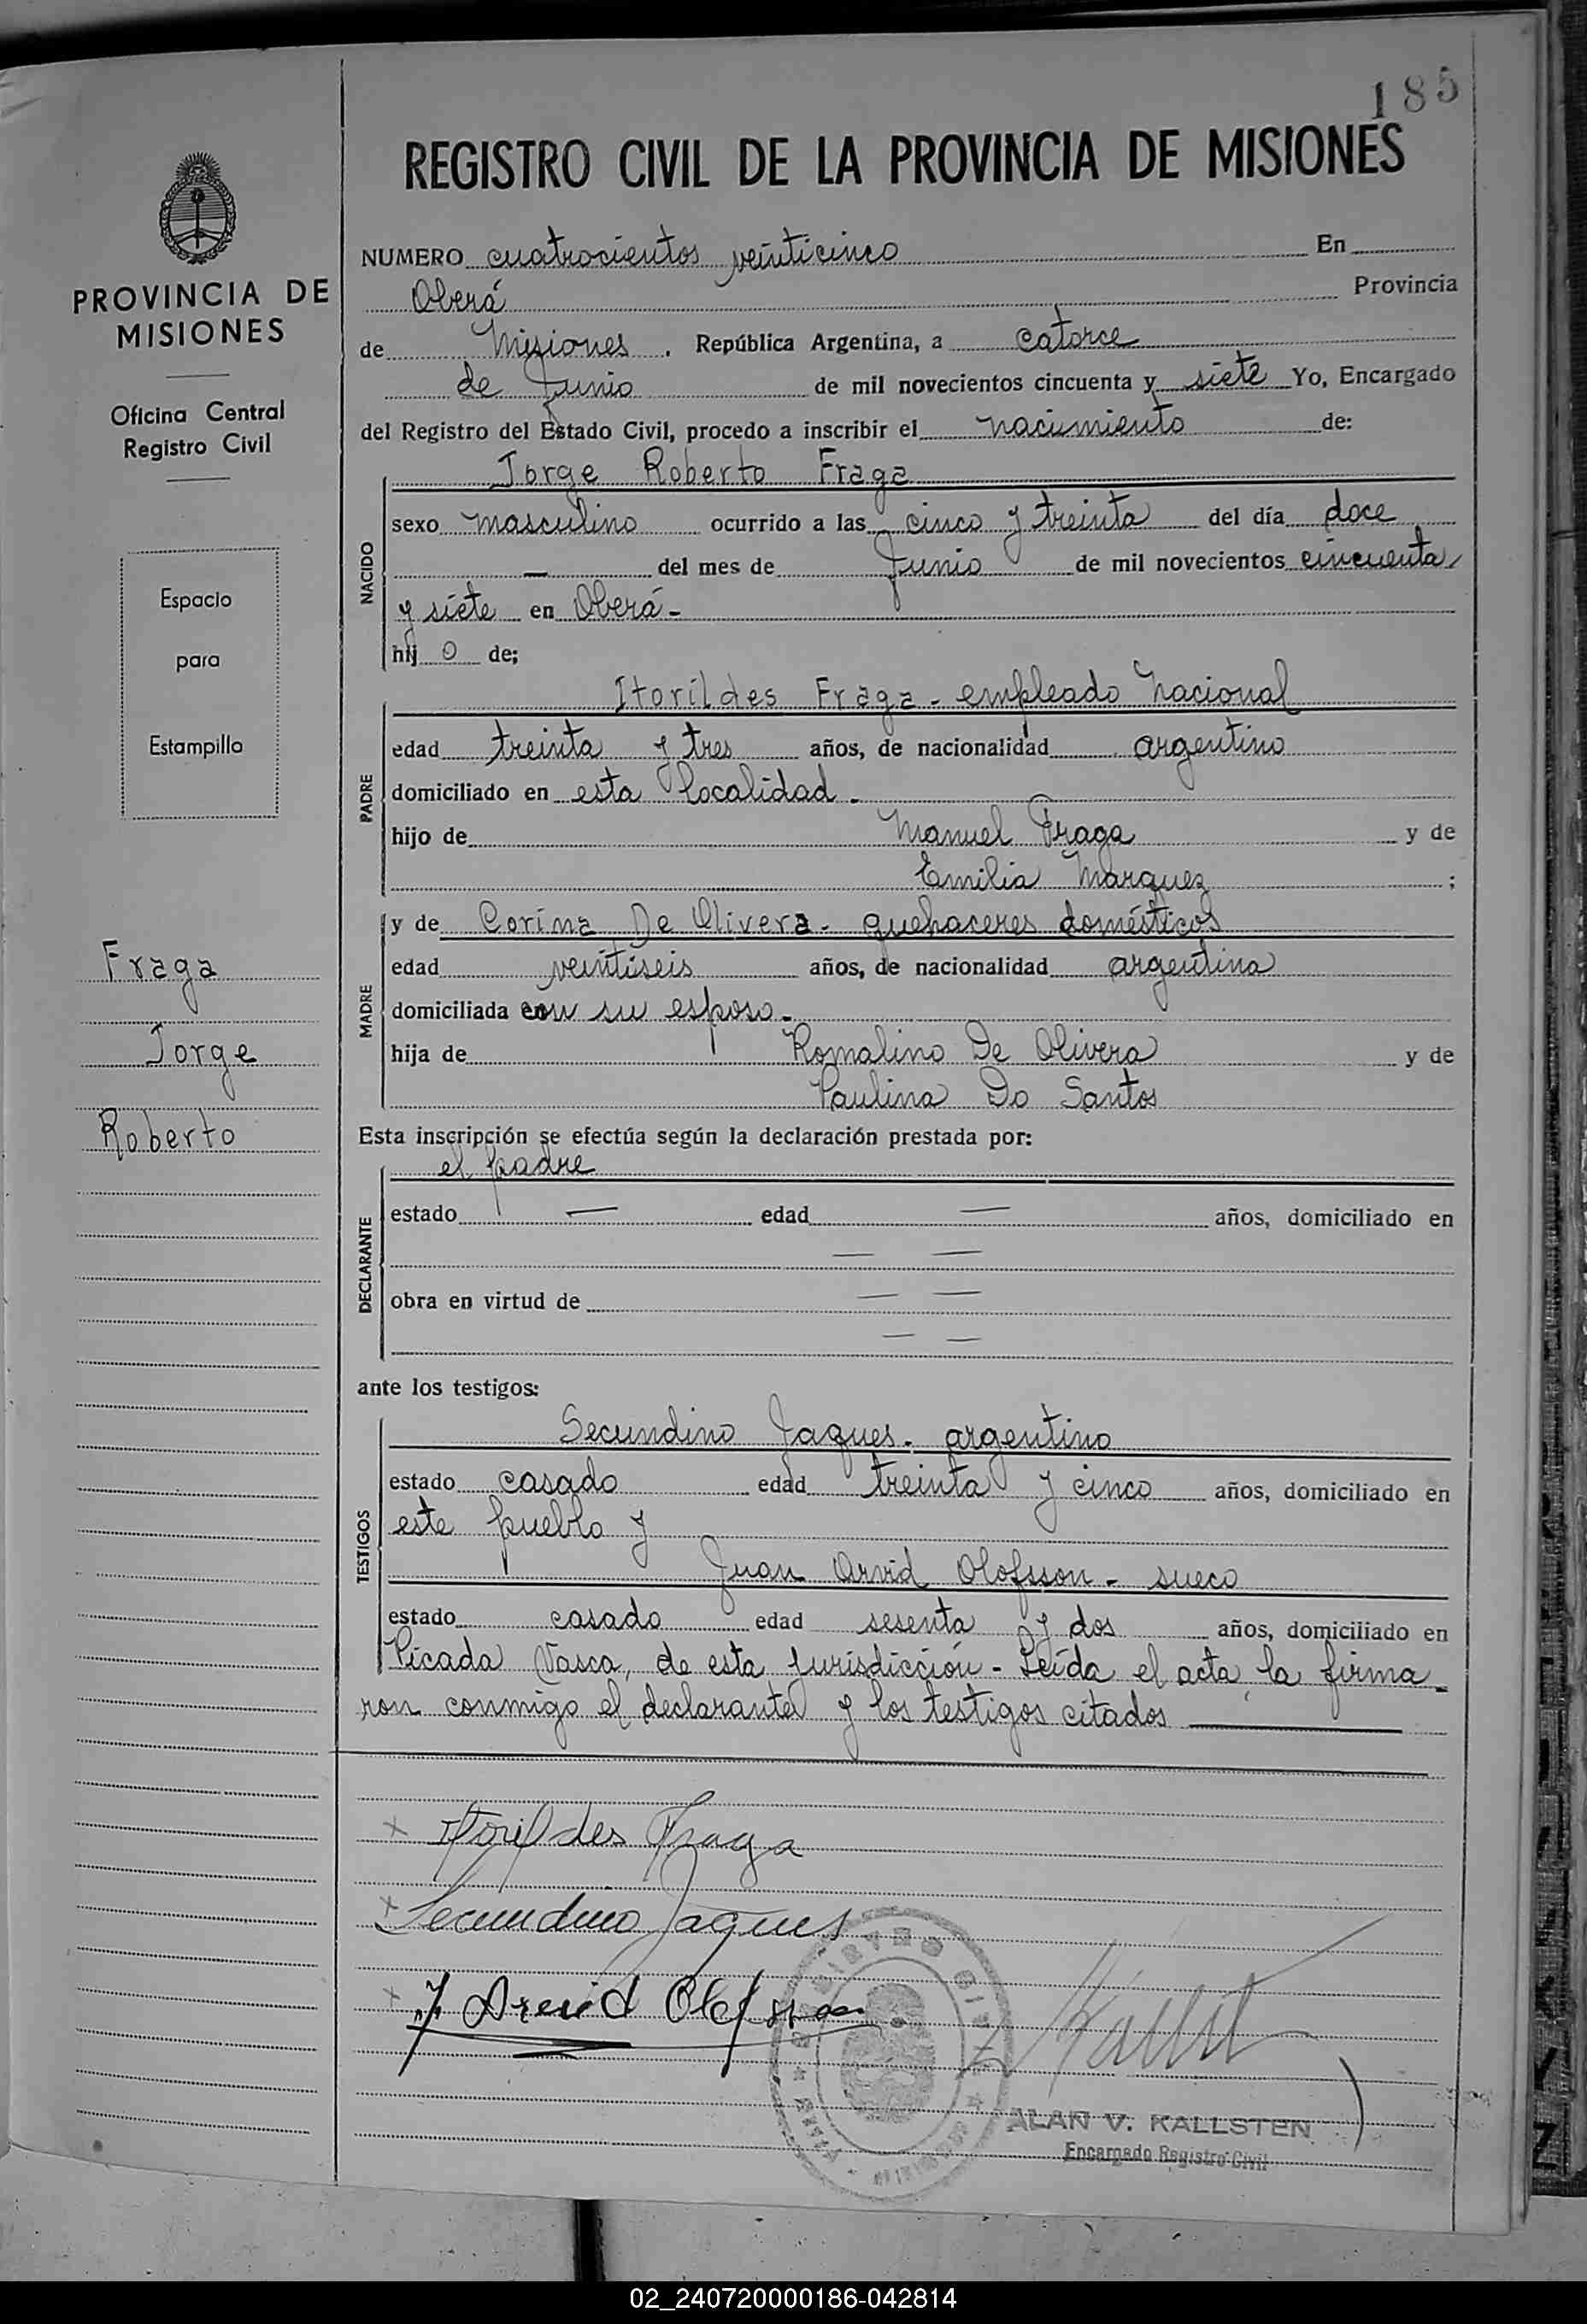 185
REGISTRO CIVIL DE LA PROVINCIA DE MISIONES
PROVINCIA DE
MISIONES
Oficina Central
Registro Civil
Espacio
para
Estampilla
Fraga
Jorge
Roberto
NUMERO cuatrocientos veinticinco En
Oberá Provincia
de Misiones. República Argentina, a catorce
de Junio de mil novecientos cincuenta y siete Yo, Encargado
del Registro del Estado Civil, procedo a inscribir el nacimiento de:
NACIDO
Jorge Roberto Fraga
sexo masculino ocurrido a las cinco y treinta del día doce
— del mes de Junio de mil novecientos cincuenta
y siete en Oberá-
hij o de;
PADRE
Itorildes Fraga - empleado nacional
edad treinta y tres años, de nacionalidad argentino
domiciliado en esta localidad -
hijo de Manuel Fraga y de
Emilia Marquez ;
MADRE
y de Corina De Olivera - quehaceres domésticos
edad veintiseis años, de nacionalidad argentina
domiciliada con su esposo -
hija de Romalino De Olivera y de
Paulina Do Santos
Esta inscripción se efectúa según la declaración prestada por:
DECLARANTE
el padre
estado — edad — años, domiciliado en
— —
obra en virtud de — —
— —
ante los testigos:
TESTIGOS
Secundino Jaques - argentino
estado casado edad treinta y cinco años, domiciliado en
este pueblo y
Juan Arvid Olofsson - sueco
estado casado edad sesenta y dos años, domiciliado en
Picada Vasca, de esta jurisdicción - Leída el acta, la firma-
ron conmigo el declarante y los testigos citados
x Itorildes Fraga
x Secundino Jaques
x J Arvid Olofsson
REGISTRO CIVIL
MISIONES
ALAN V. KALLSTEN
Encargado Registro Civil
02_240720000186-042814